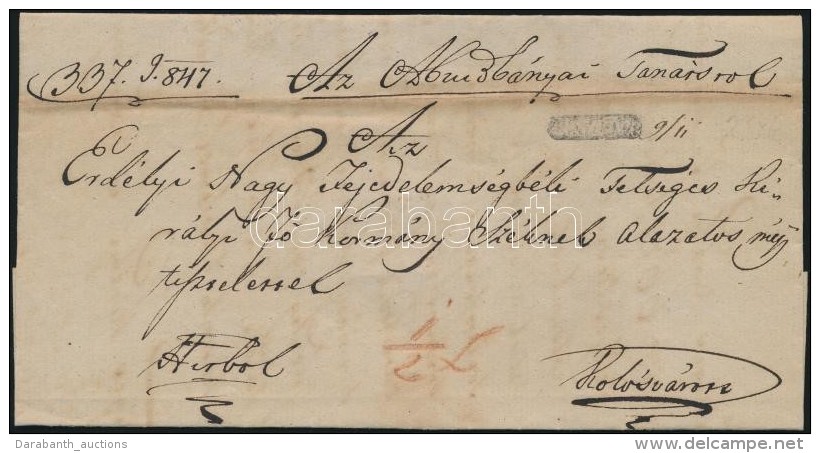 337. J. 847. Az Abrudbányai Tanátstol
Az 9/11
Erdélyi Nagy Fejedelemségbéli Felséges Ki-
rályi Fő Kormány Széknek alazatos meg
tisztelessel
Kolosváros
1/2
darabanth
Darabanth_auctions http://www.delcampe.net